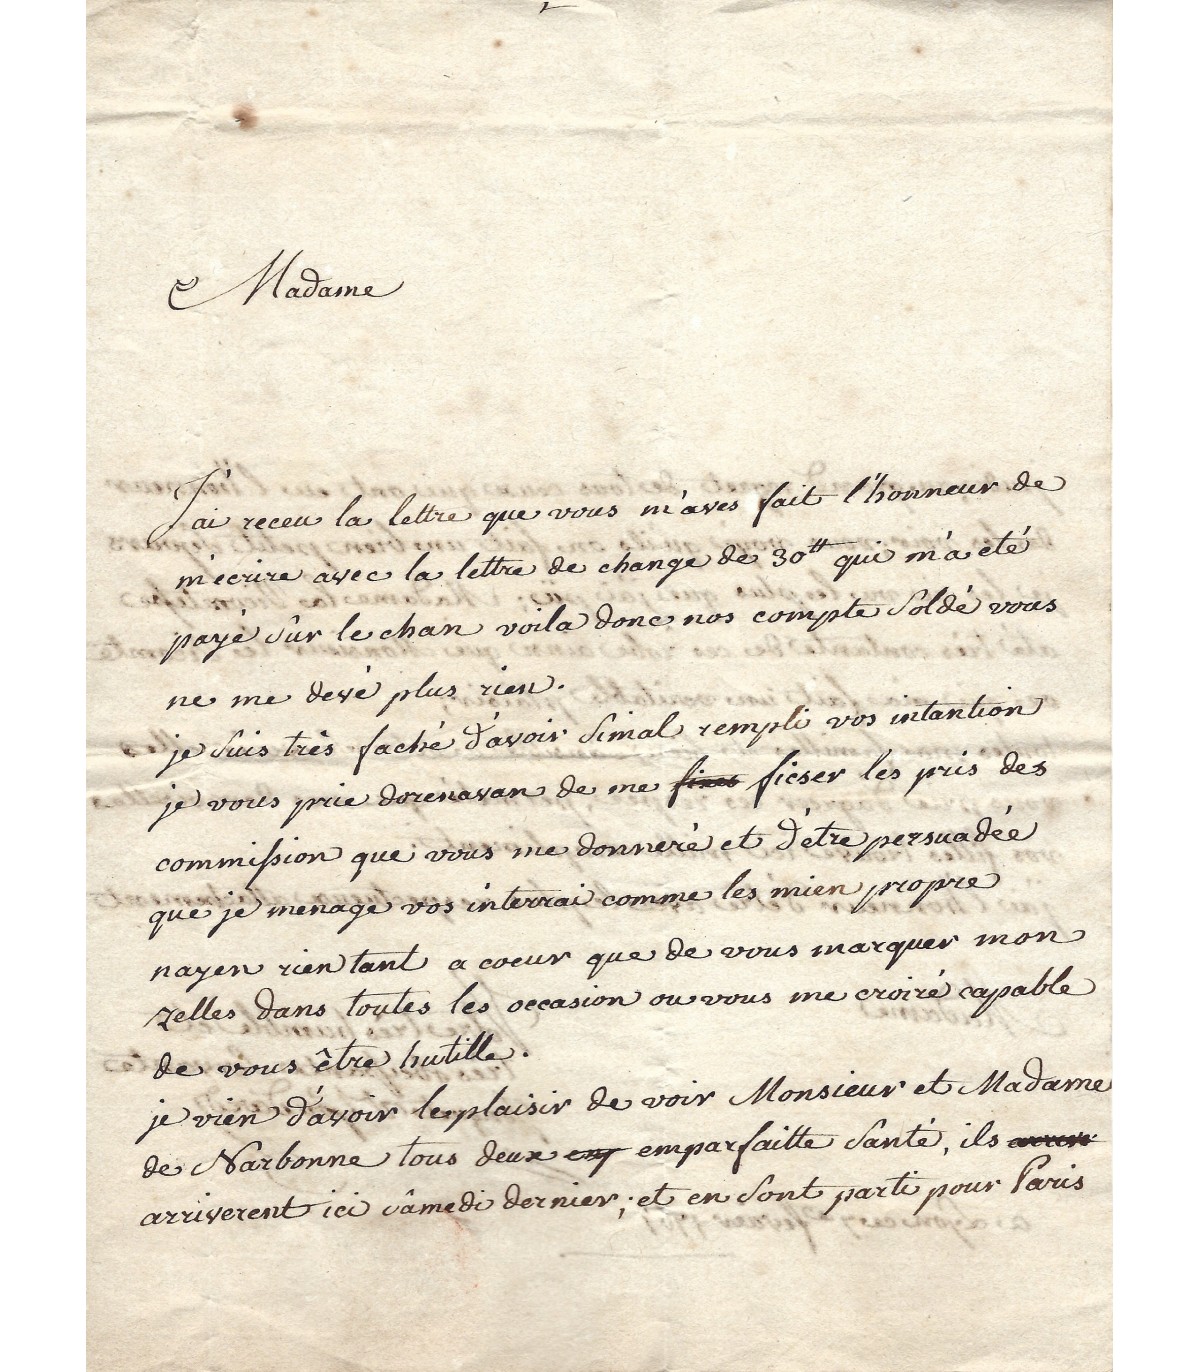 Madame
J'ai receu la lettre que vous m'aves fait l'honneur de
m'ecrire avec la lettre de change de 30tt qui m'a eté
payé sûr le chan voila donc nos compte soldé vous
ne me devé plus rien.
je suis très faché d'avoir simal rempli vos intantion
je vous prie dorenavan de me ficser les pris des
commission que vous me donneré et d'étre persuadée
que je menage vos interrai comme les mien propre
nayen rien tant a coeur que de vous marquer mon
zelles dans toutes les occasion ou vous me croiré capable
de vous être hutille.
je vien d'avoir le plaisir de voir Monsieur et Madame
de Narbonne tous deux emparfaitte santé, ils
arriverent ici sâmedi dernier; et en sont parti pour Paris